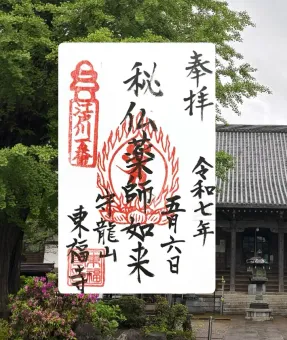 奉拝
令和七年
五月六日
秘仏薬師如来
守龍山
東福寺
江戸川